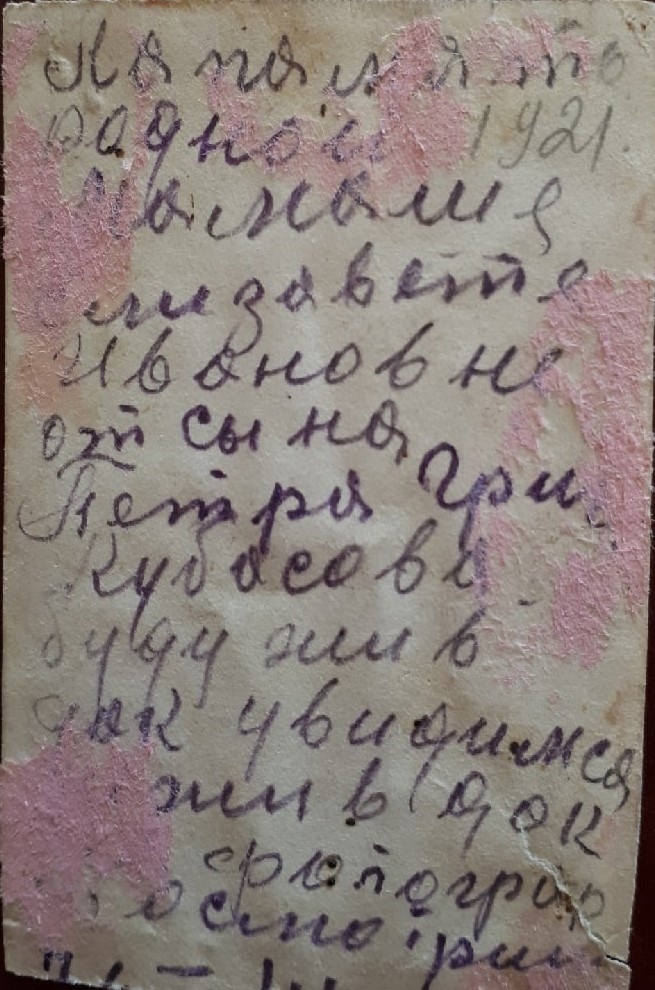 На память
родной 1921.
Мамаше
Елизавете
Ивановне
от сына
Петра Гри
Кубосова
буду жив
дак увидимся
жив дак
фотограф
посмотри